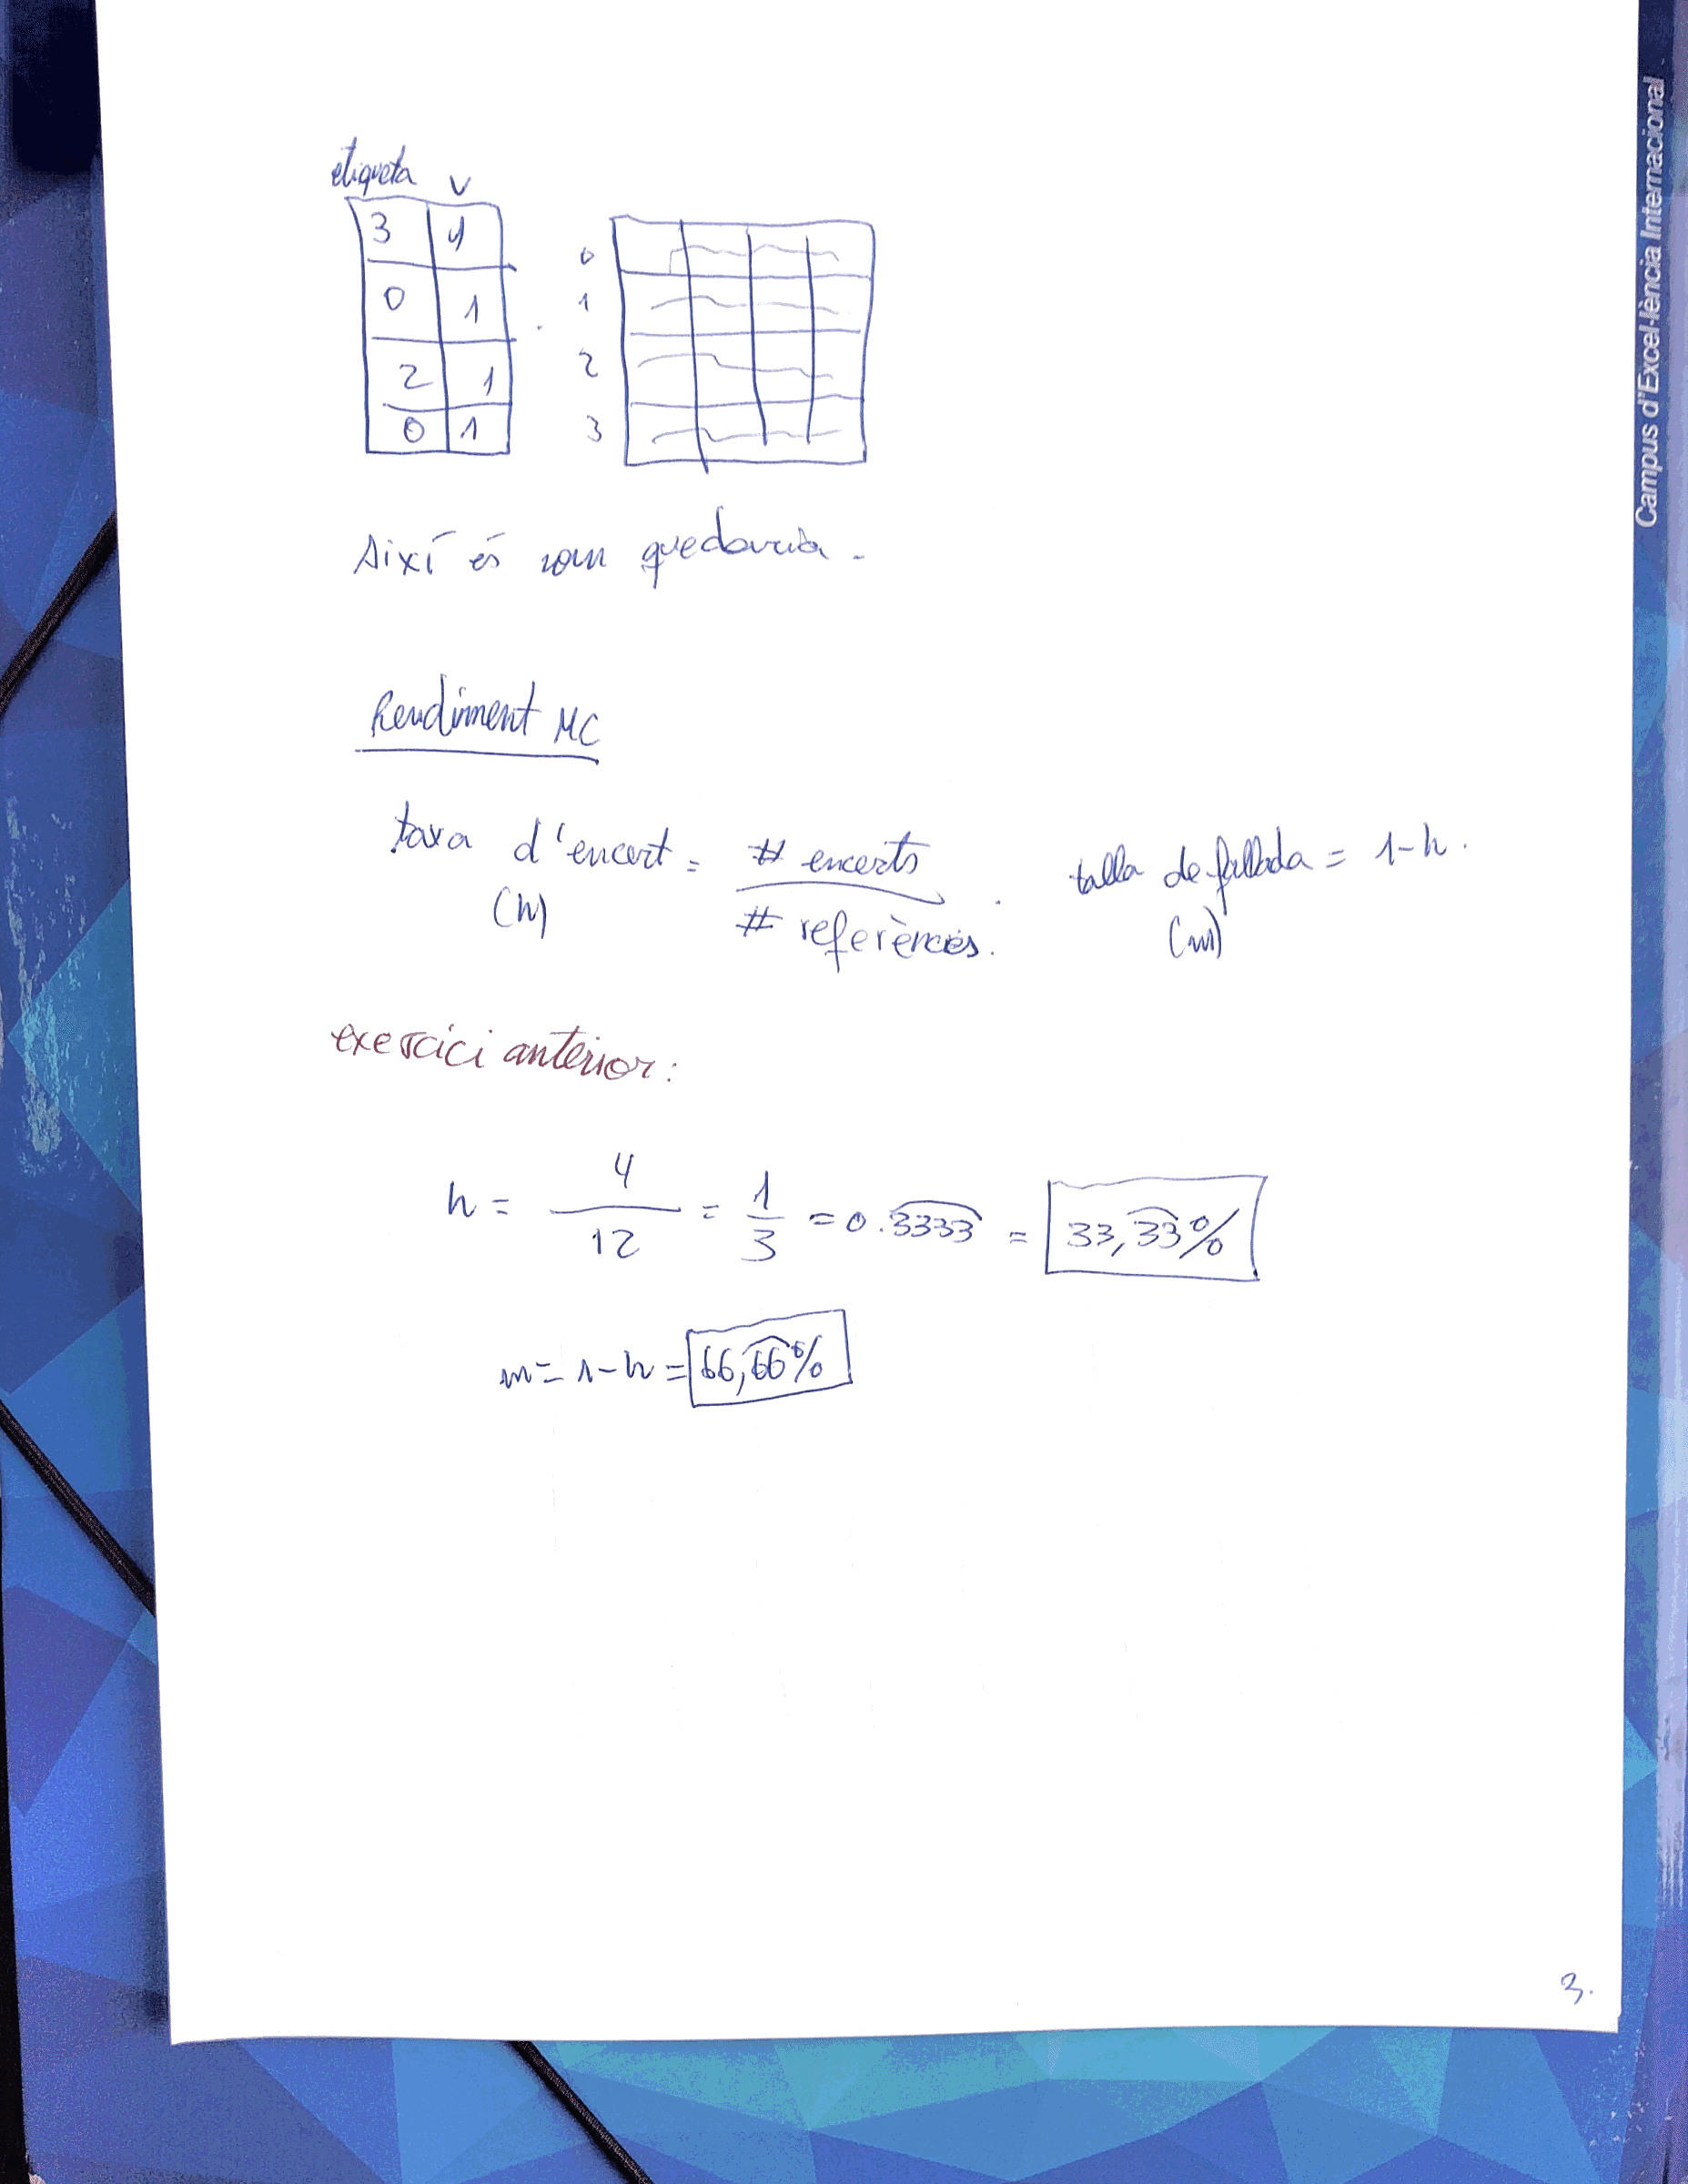 etiqueta v
3 1
0 1
2 1
0 1
0
1
2
3
Així és com quedaria.
Rendiment MC
taxa d'encert = # encerts / # referències. talla de fallada = 1-h.
(h) (m)
exercici anterior:
h = 4/12 = 1/3 = 0.3333 = 33,33%
m = 1-h = 66,66%
3.
Campus d'Excel·lència Internacional